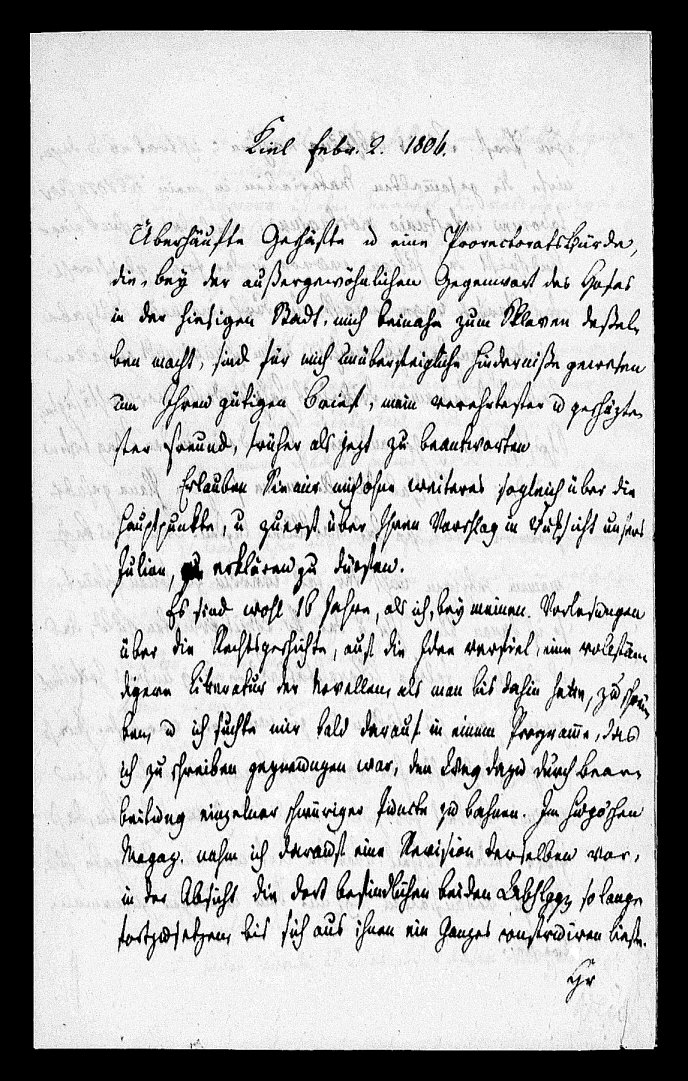 Kiel Febr. 2. 1806.
Überhäufte Geschäfte u eine Prorectoratsbürde,
die, bey der außergewöhnlichen Gegenwart des Hofes
in der hiesigen Stadt, mich beinahe zum Sklaven deßel,
ben macht, sind für mich unübersteigliche Hinderniße gewesen
um Ihren gütigen Brief, mein verehrtester u geschäzte,
ster Freund, früher als jezt zu beantworten
Erlauben Sie mir mich ohne weiteres sogleich über die
Hauptpunkte, u zuerst über Ihren Vorschlag in Rüksicht unsers
Julian, zu erklären zu dürfen.
Es sind wohl 16 Jahre, als ich, bey meinen Vorlesungen
über die Rechtsgeschichte, auf die Idee verfiel, eine vollstän,
digere Literatur der Novellen, als man bis dahin hatte, zu schrei,
ben, u ich suchte mir bald darauf in einem Programme, das
ich zu schreiben gezwungen war, den Weg dazu durch Bear,
beitung einzelner schwüriger Puncte zu bahnen. Im Hugoschen
Magaz. nahm ich darauf eine Revision derselben vor,
in der Absicht die dort befindlichen beiden so lange
fortzusetzen, bis sich aus ihnen ein Ganzes construiren ließe.